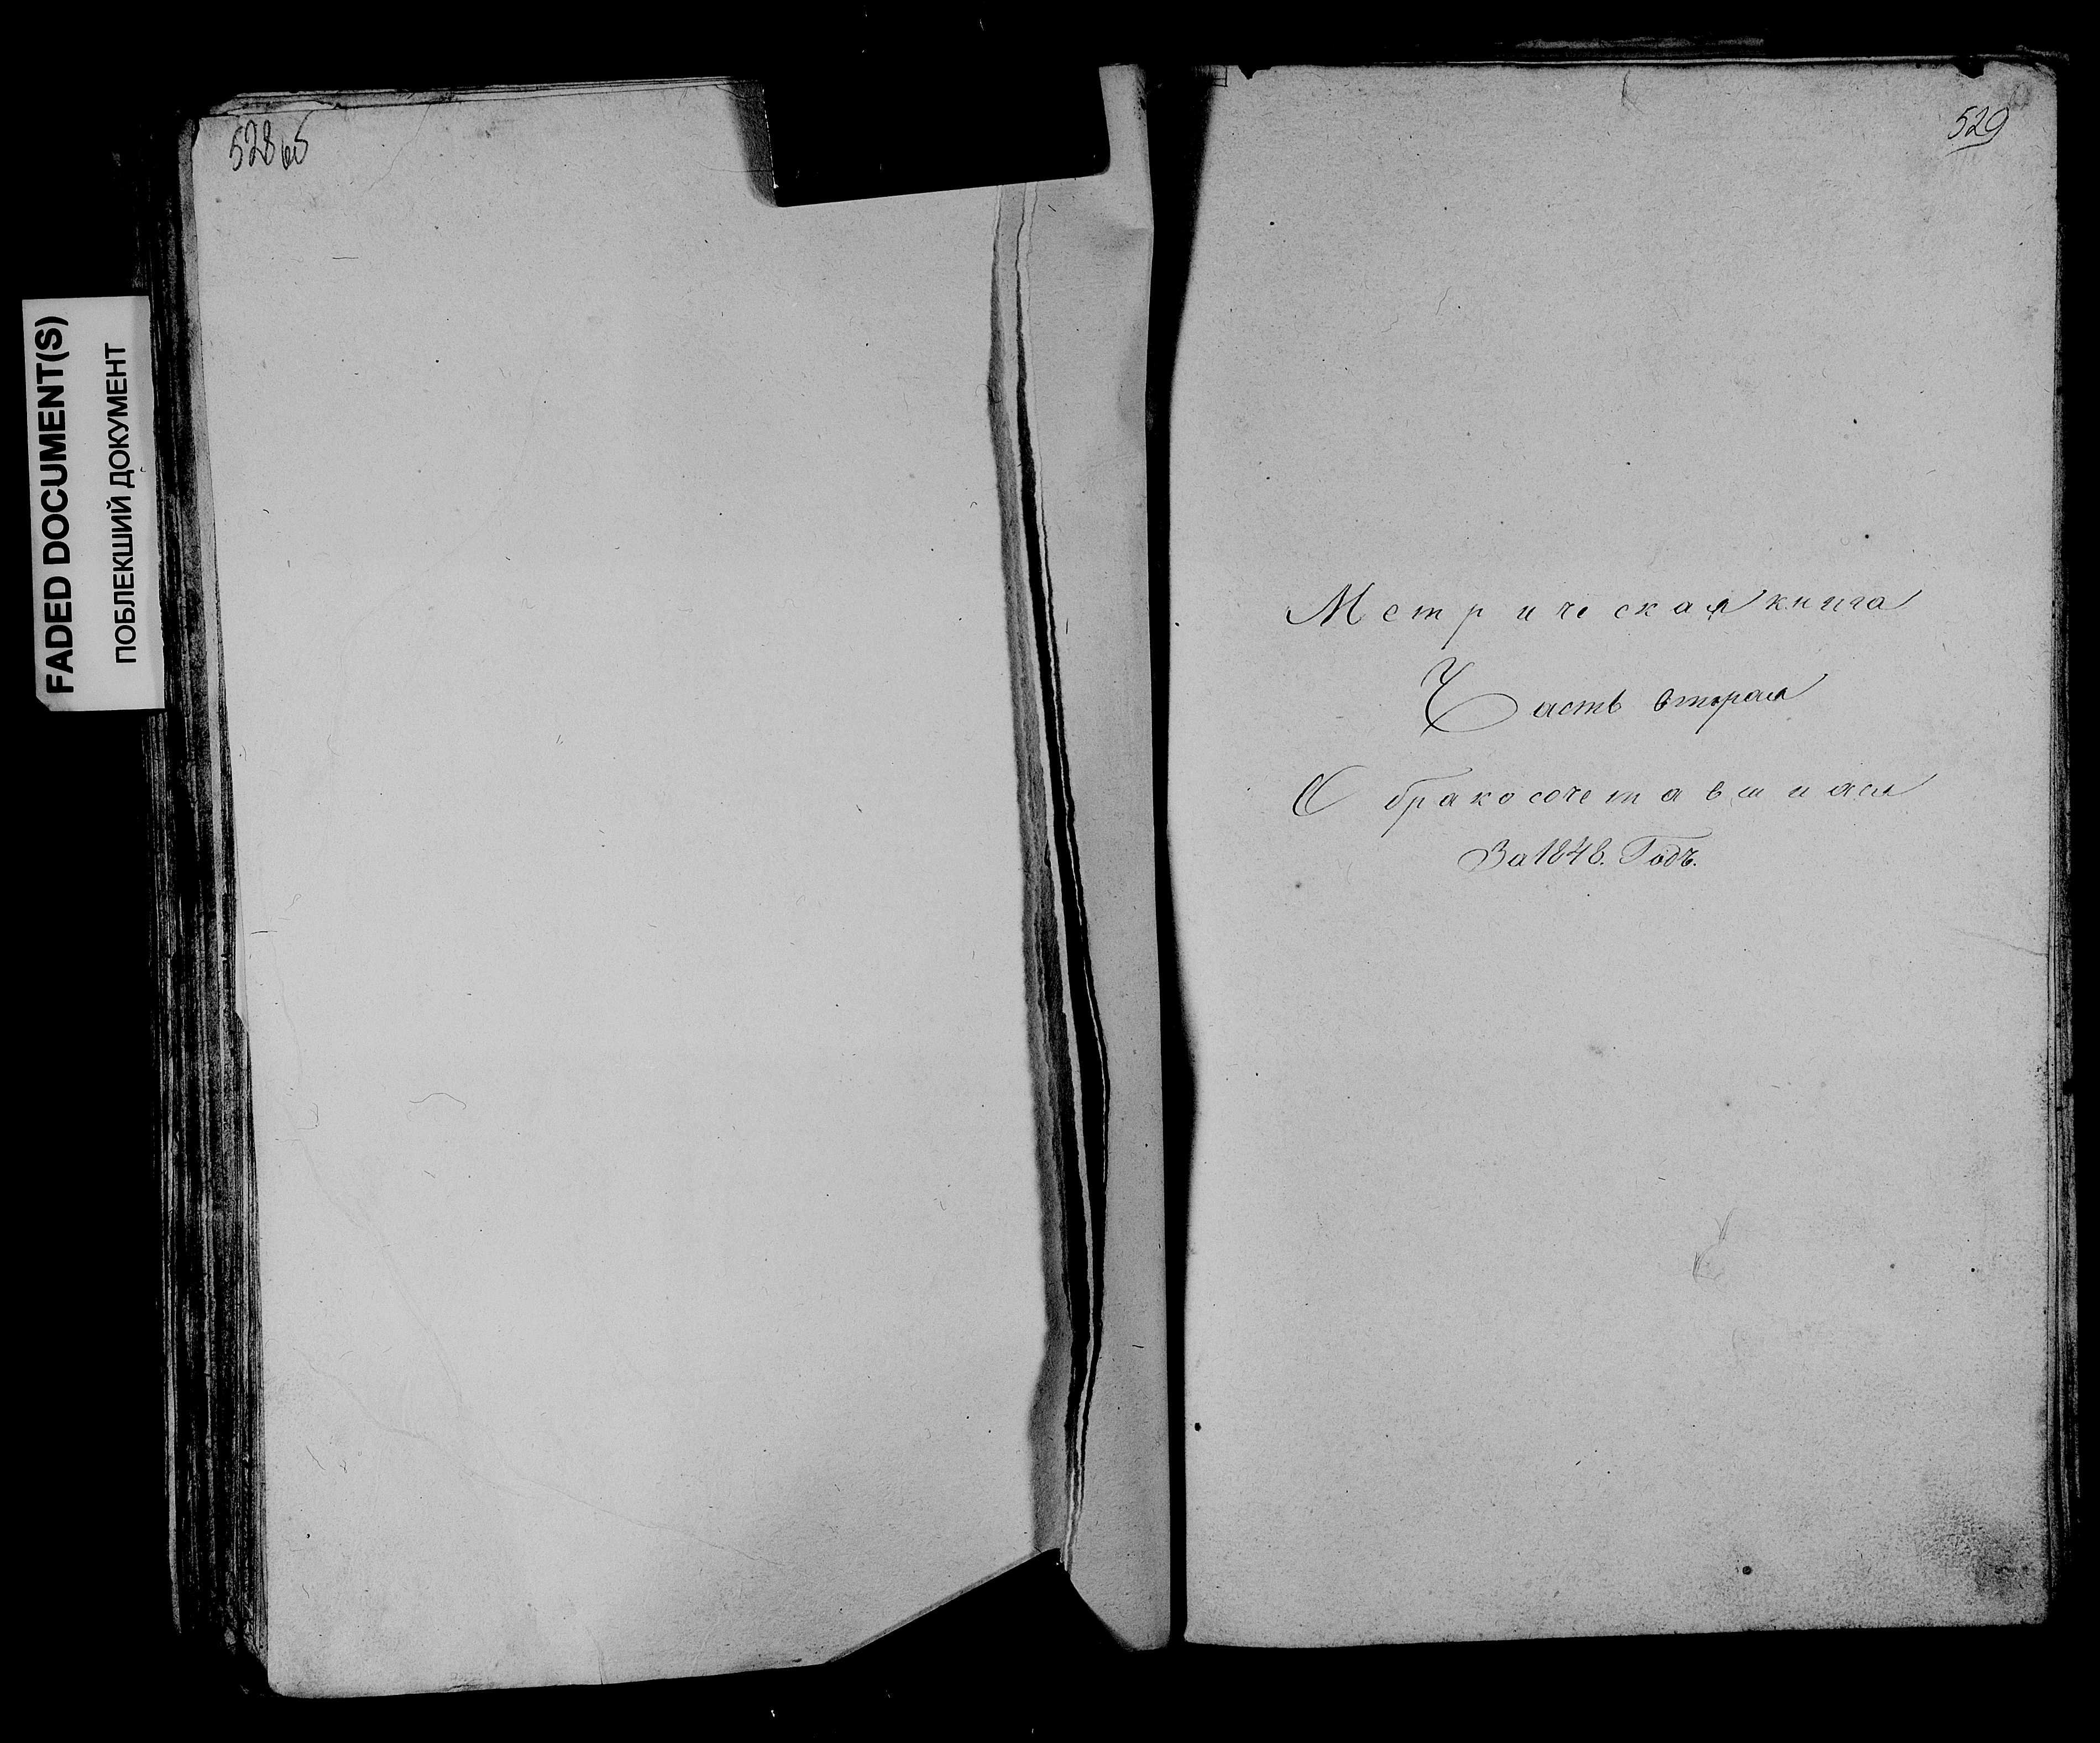 FADED DOCUMENT(S)
ПОБЛЕКШИЙ ДОКУМЕНТ
528об
529
Метрическая книга
Часть вторая
О бракосочетавшихся
За 1848. Годъ.